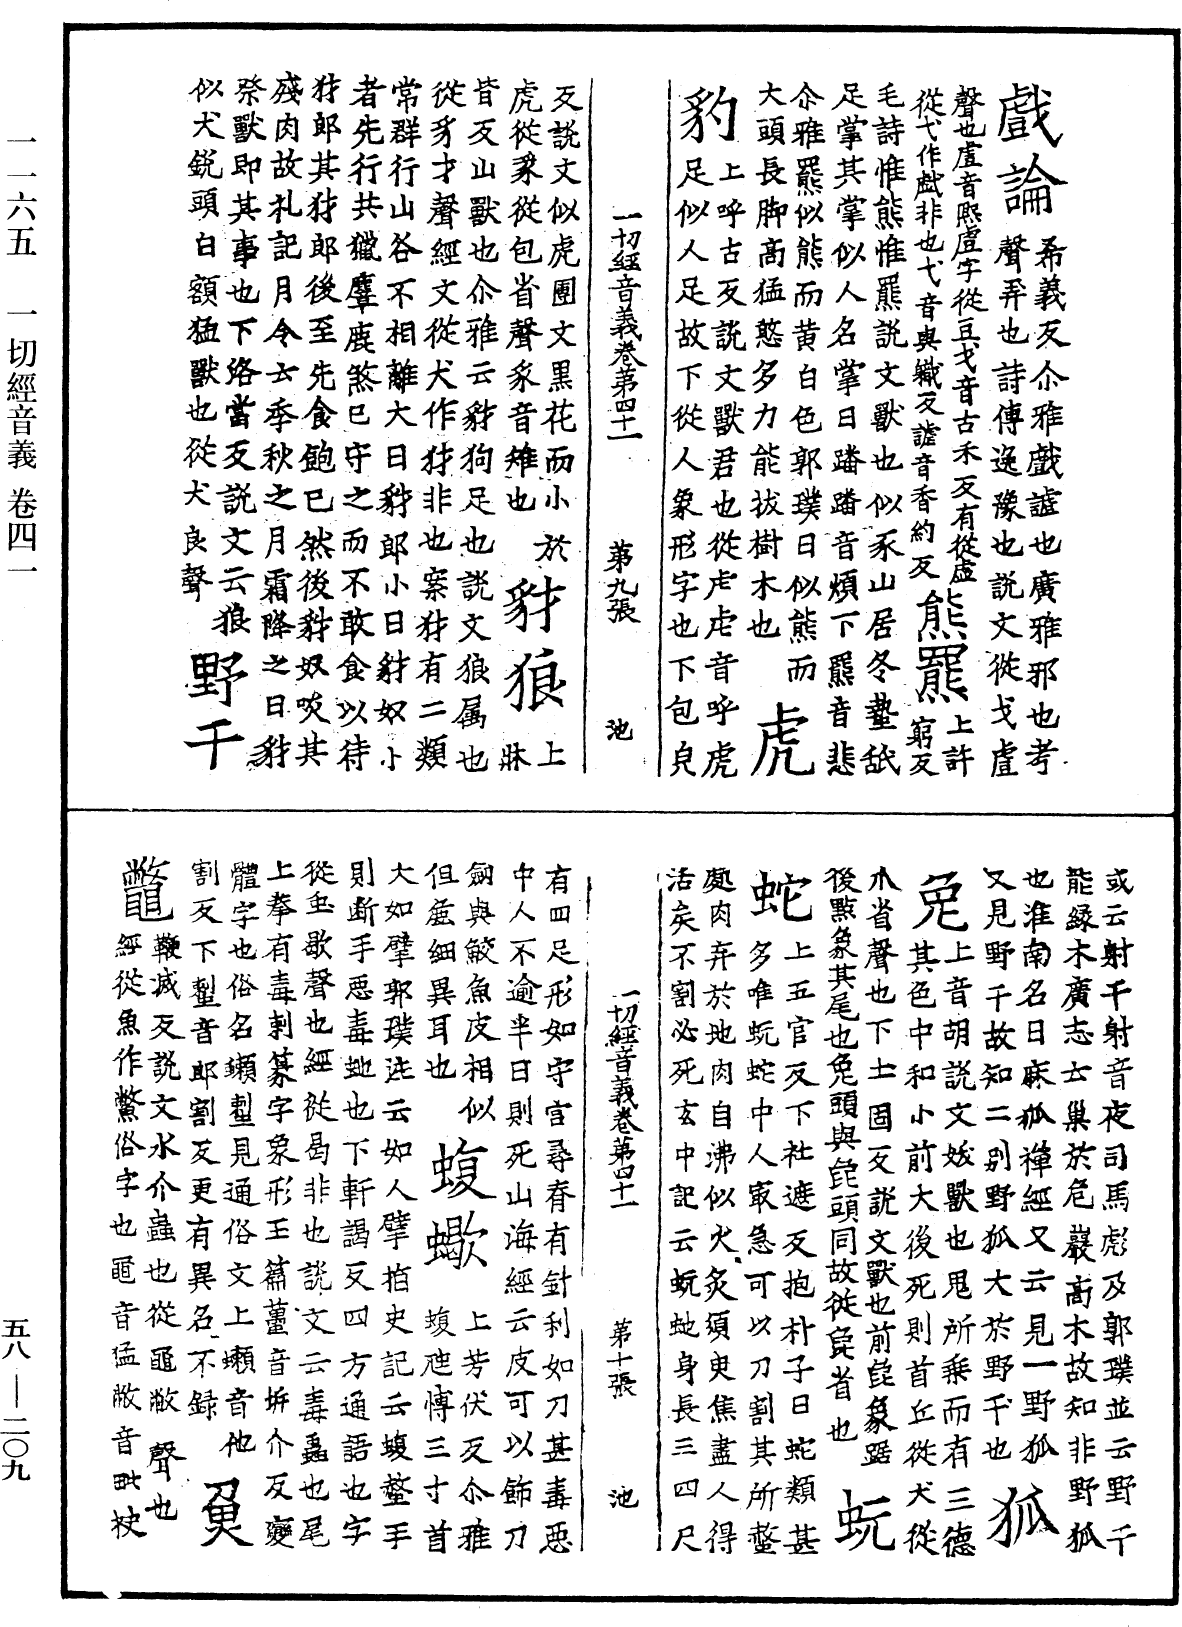 一一六五 一切經音義 卷四一
戲論 希義反尒雅戲謔也廣雅邪也考
聲弄也詩傳逸豫也說文從戈䖒
聲也䖒音熙䖒字從豆戈音古禾反有從虛
從弋作戱非也弋音與軄反謔音香約反 熊羆 上許
窮反
毛詩惟熊惟羆說文獸也似豕山居冬蟄舐
足掌其掌似人名掌曰蹯蹯音煩下羆音悲
尒雅羆似熊而黄白色郭璞曰似熊而
大頭長脚高猛憨多力能拔樹木也 虎
豹 上呼古反說文獸君也從虍虍音呼虎
足似人足故下從人象形字也下包皃
一切經音義卷第四十一 第九張 池
反說文似虎團文黑花而小於
虎從豸從包省聲豸音雉也 豺狼 上
牀
皆反山獸也尒雅云豺狗足也說文狼属也
從豸才聲經文從犬作犲非也案犲有二類
常群行山谷不相離大曰豺郎小曰豺奴小
者先行共獵麞鹿煞已守之而不敢食以待
犲郎其犲郎後至先食飽已然後豺奴啖其
殘肉故礼記月令云季秋之月霜降之日豺
祭獸即其事也下洛當反說文云狼
似犬銳頭白額猛獸也從犬良聲 野干
或云射干射音夜司馬彪及郭璞並云野干
能緣木廣志云巢於危巖高木故知非野狐
也淮南名曰麻狐禪經又云見一野狐
又見野干故知二别野狐大於野干也 狐
兔 上音胡說文妖獸也鬼所乘而有三德
其色中和小前大後死則首丘從犬從
爪省聲也下土固反說文獸也前㲋象踞
後點象其尾也兔頭與㲋頭同故從㲋省也 蚖
蛇 上五官反下社遮反抱朴子曰蛇類甚
多唯蚖蛇中人寂急可以刀割其所螫
處肉弃於地肉自沸似火炙須臾焦盡人得
活矣不割必死玄中記云蚖虵身長三四尺
一切經音義卷第四十一 第十張 池
有四足形如守宫尋脊有針利如刀甚毒惡
中人不逾半日則死山海經云皮可以飾刀
劒與鮫魚皮相似 蝮蠍 上芳伏反尒雅
但麁細異耳也 蝮虺慱三寸首
大如擘郭璞注云如人擘拍史記云蝮螫手
則斷手惡毒虵也下軒謁反四方通語也字
從虫歇聲也經從曷非也說文云毒蟲也尾
上拳有毒刺篆字象形玉篇蠆音坼介反變
體字也俗名蝲䖽見通俗文上蝲音他
割反下䖽音郎割反更有異名不録 龜
鼈 鞭滅反說文水介蟲也從黽敝聲也
經從魚作鱉俗字也黽音猛敝音毗袂
五八—二〇九